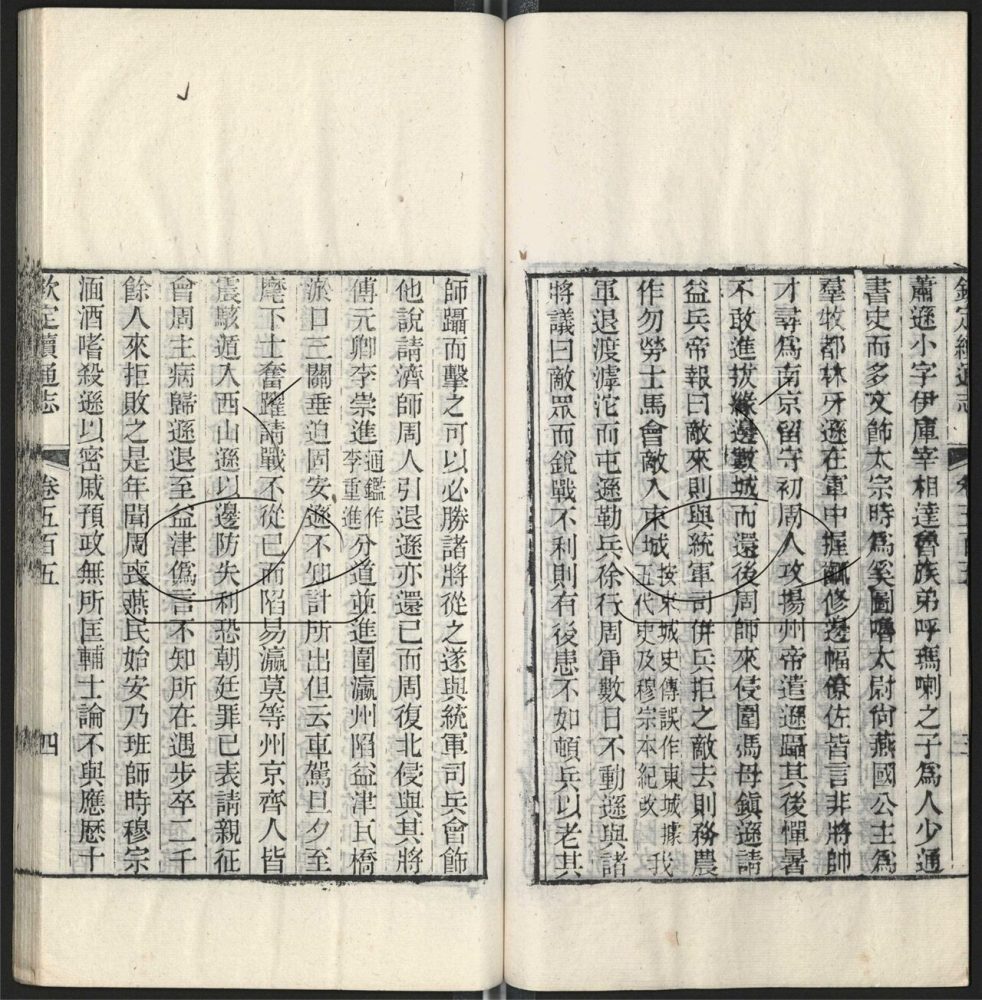 欽定續通志
蕭遜小字伊庫宰相達魯族弟呼瑪喇之子爲人少通
書史而多文飾太宗時爲奚圖嚕太尉尚燕國公主爲
羣牧都林牙遜在軍中握修邊幅僚佐皆言非將帥
才尋爲南京留守初周人攻揚州帝遣遜躡其後憚暑
不敢進拔緣邊數城而還後周師來侵圍馮母鎭遜請
益兵帝報曰敵來則與統軍司併兵拒之敵去則務農
作勿勞士馬會敵入束城按束城史傳誤作東城據我五代史及穆宗本紀改
軍退渡滹沱而屯遜勒兵徐行周軍數日不動遜與諸
將議曰敵眾而銳戰不利則有後患不如頓兵以老其
師躡而擊之可以必勝諸將從之遂與統軍司兵會飾
他說請濟師周人引退遜亦還已而周復北侵與其將
傅元卿李崇進通鑑作李重進分道並進圍瀛州陷益津瓦橋
淤口三關垂迫固安遜不知計所出但云車駕旦夕至
麾下士奮躍請戰不從已而陷易瀛莫等州京齊人皆
震駭遁入西山遜以邊防失利恐朝廷罪已表請親征
會周主病歸遜退至益津僞言不知所在遇步卒二千
餘人來拒敗之是年聞周喪燕民始安乃班師時穆宗
湎酒嗜殺遜以密戚預政無所匡輔士論不與應歷十
欽定續通志
卷五百五
四